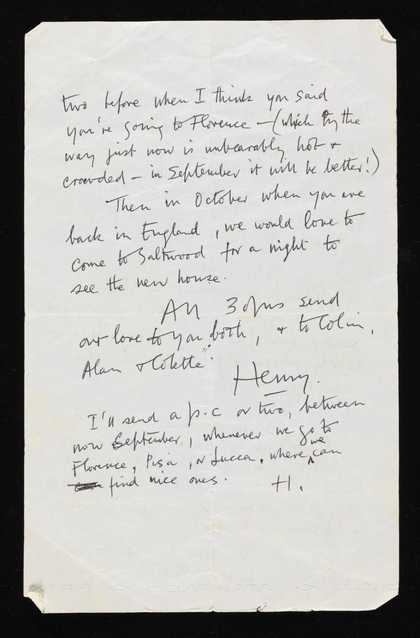 two before when I think you said
you're going to Florence — (which by the
way just now is unbearably hot +
crowded — in September it will be better!)
Then in October when you are
back in England, we would love to
come to Saltwood for a night to
see the new house.
All 3 of us send
our love to you both, + to Colin,
Alan + Colette.
Henry.
I'll send a p.c or two, between
now September, whenever we go to
Florence, Pisa, or Lucca, where we can
find nice ones. H.